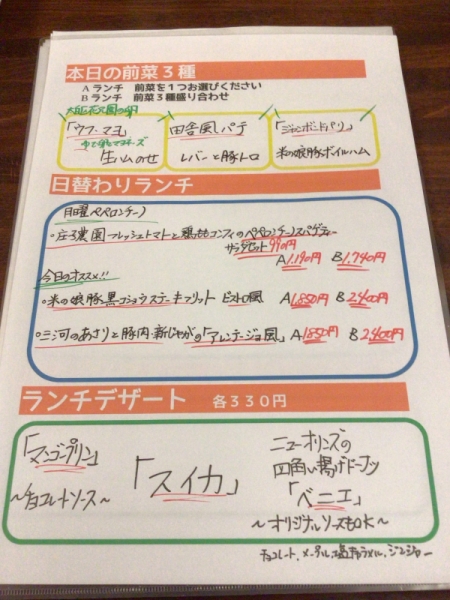 本日の前菜3種
Aランチ 前菜を1つお選びください
Bランチ 前菜3種盛り合わせ
「ウフ・マヨ」
生ハムのせ
田舎風パテ
レバーと豚トロ
「ジャンボンドパリ」
米の娘豚ボイルハム
日替わりランチ
日曜ペペロンチーノ
・庄子農園フレッシュトマトと鶏ももコンフィのペペロンチーノスパゲティー
サラダセット990円
A1,190円 B1,740円
今日のオススメ!!
・米の娘豚黒コショウステーキフリット ビストロ風 A1,850円 B2,400円
・三河のあさりと豚肉・新じゃがの「アレンテージョ風」 A1,850円 B2,400円
ランチデザート 各330円
「マンゴープリン」
~チョコレートソース~
「スイカ」
ニューオリンズの
四角い揚げドーナツ
「ベニエ」
~オリジナルソースもOK~
チョコレート、メープル、塩キャラメル、ジンジャー